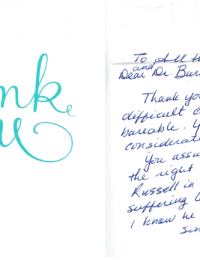 nk
u
To all th
and
Dear Dr. Bur
Thank you
difficult c
bareable. Y
considerat
You assu
the right
Russell in
suffering
I know he
sin